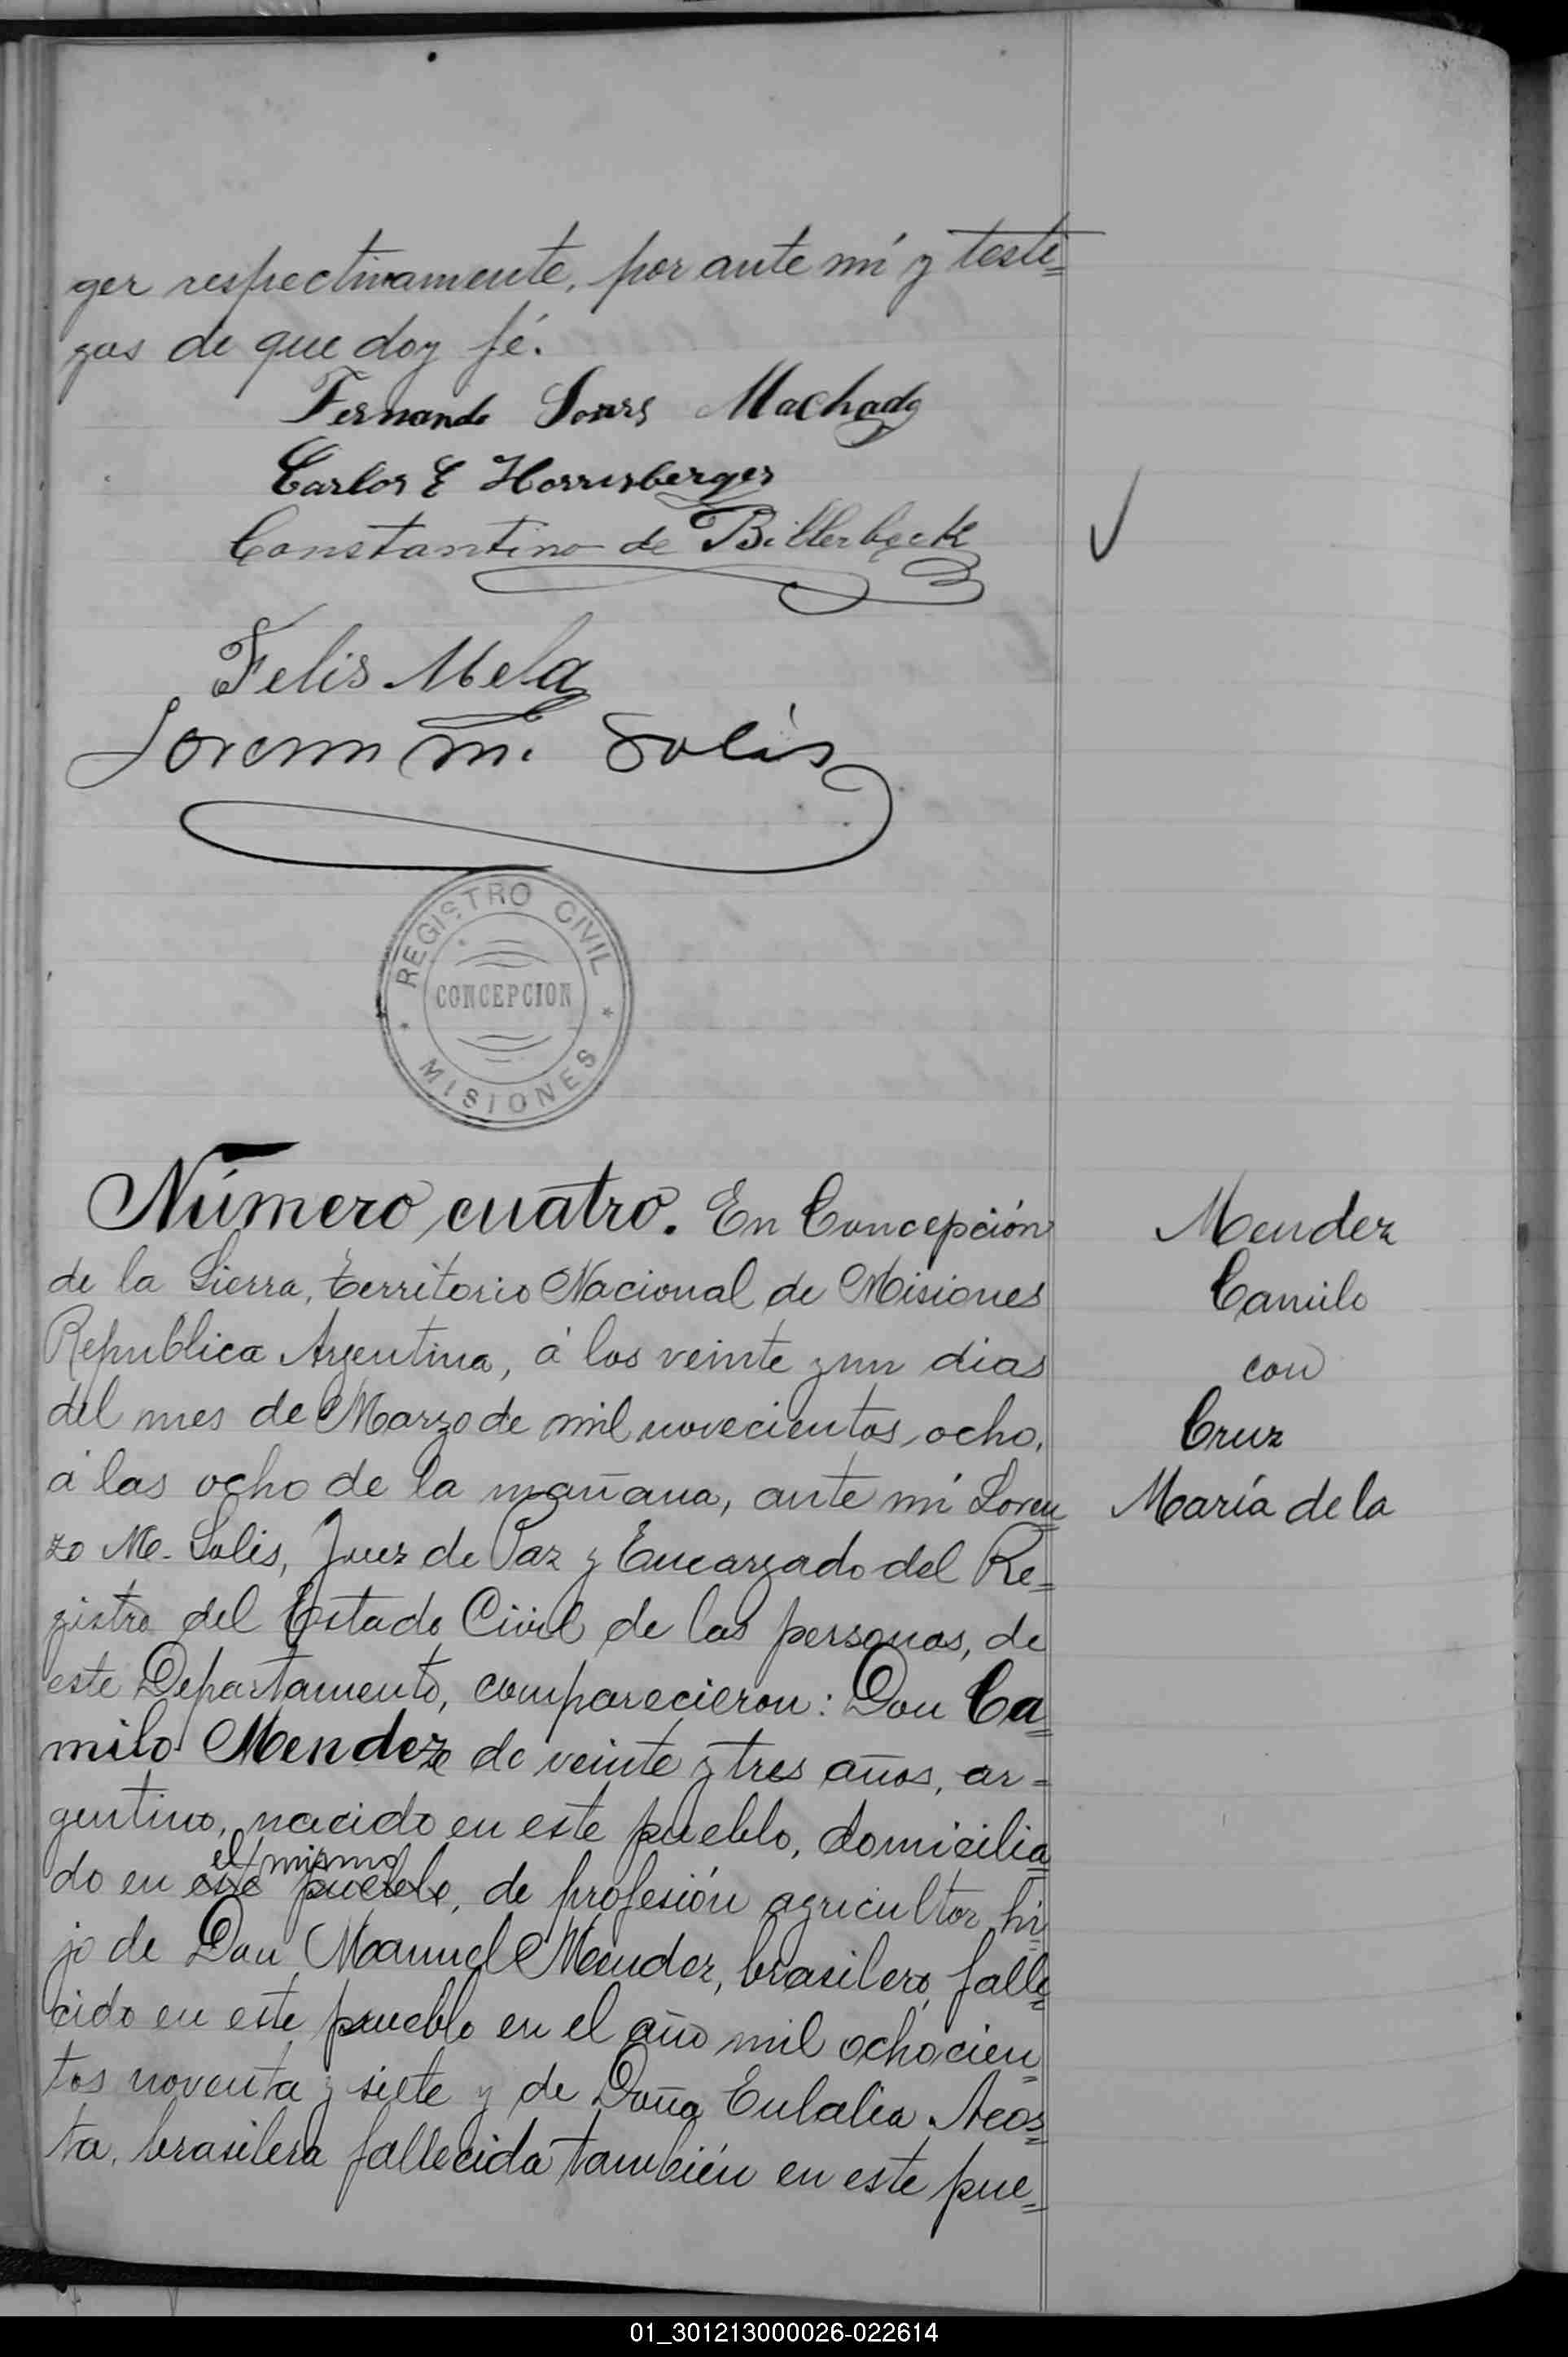 ger respectivamente, por ante mí y testi=
gos de que doy fé.
Fernando Soars Machado
Carlos E Horrisberger
Constantino de Billerbeck
Felis Mela
Lorenzo M. Solís
REGISTRO CIVIL
CONCEPCION
* MISIONES *
Número cuatro. En Concepción
de la Sierra, territorio Nacional de Misiones
Republica Argentina, á los veinte y un dias
del mes de Marzo de mil novecientos ocho,
á las ocho de la mañana, ante mí Loren=
zo M. Solis, Juez de Paz y Encargado del Re=
gistro del Estado Civil de las personas, de
este Departamento, comparecieron: Don Ca=
milo Mendez de veinte y tres años, ar=
gentino, nacido en este pueblo, domicilia=
el mismo
do en este pueblo, de profesión agricultor, hi=
jo de Don Manuel Mendez, brasilero, falle=
cido en este pueblo en el año mil ochocien=
tos noventa y siete y de Doña Eulalia Acos=
ta, brasilera fallecida también en este pue=
Mendez
Camilo
con
Cruz
María de la
01_301213000026-022614